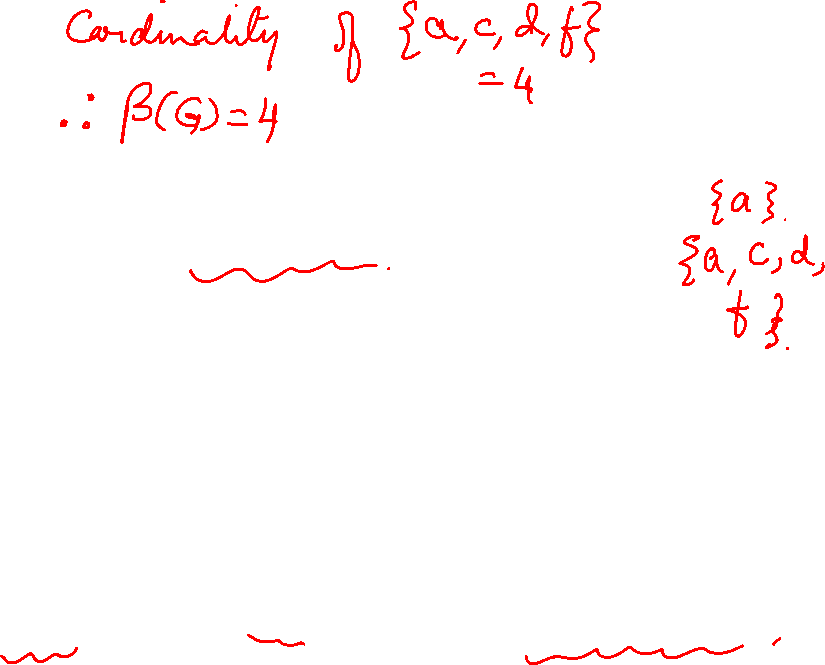 Cardinality of {a, c, d, f}
= 4
∴ β(G) = 4
{a}.
{a, c, d,
f}.